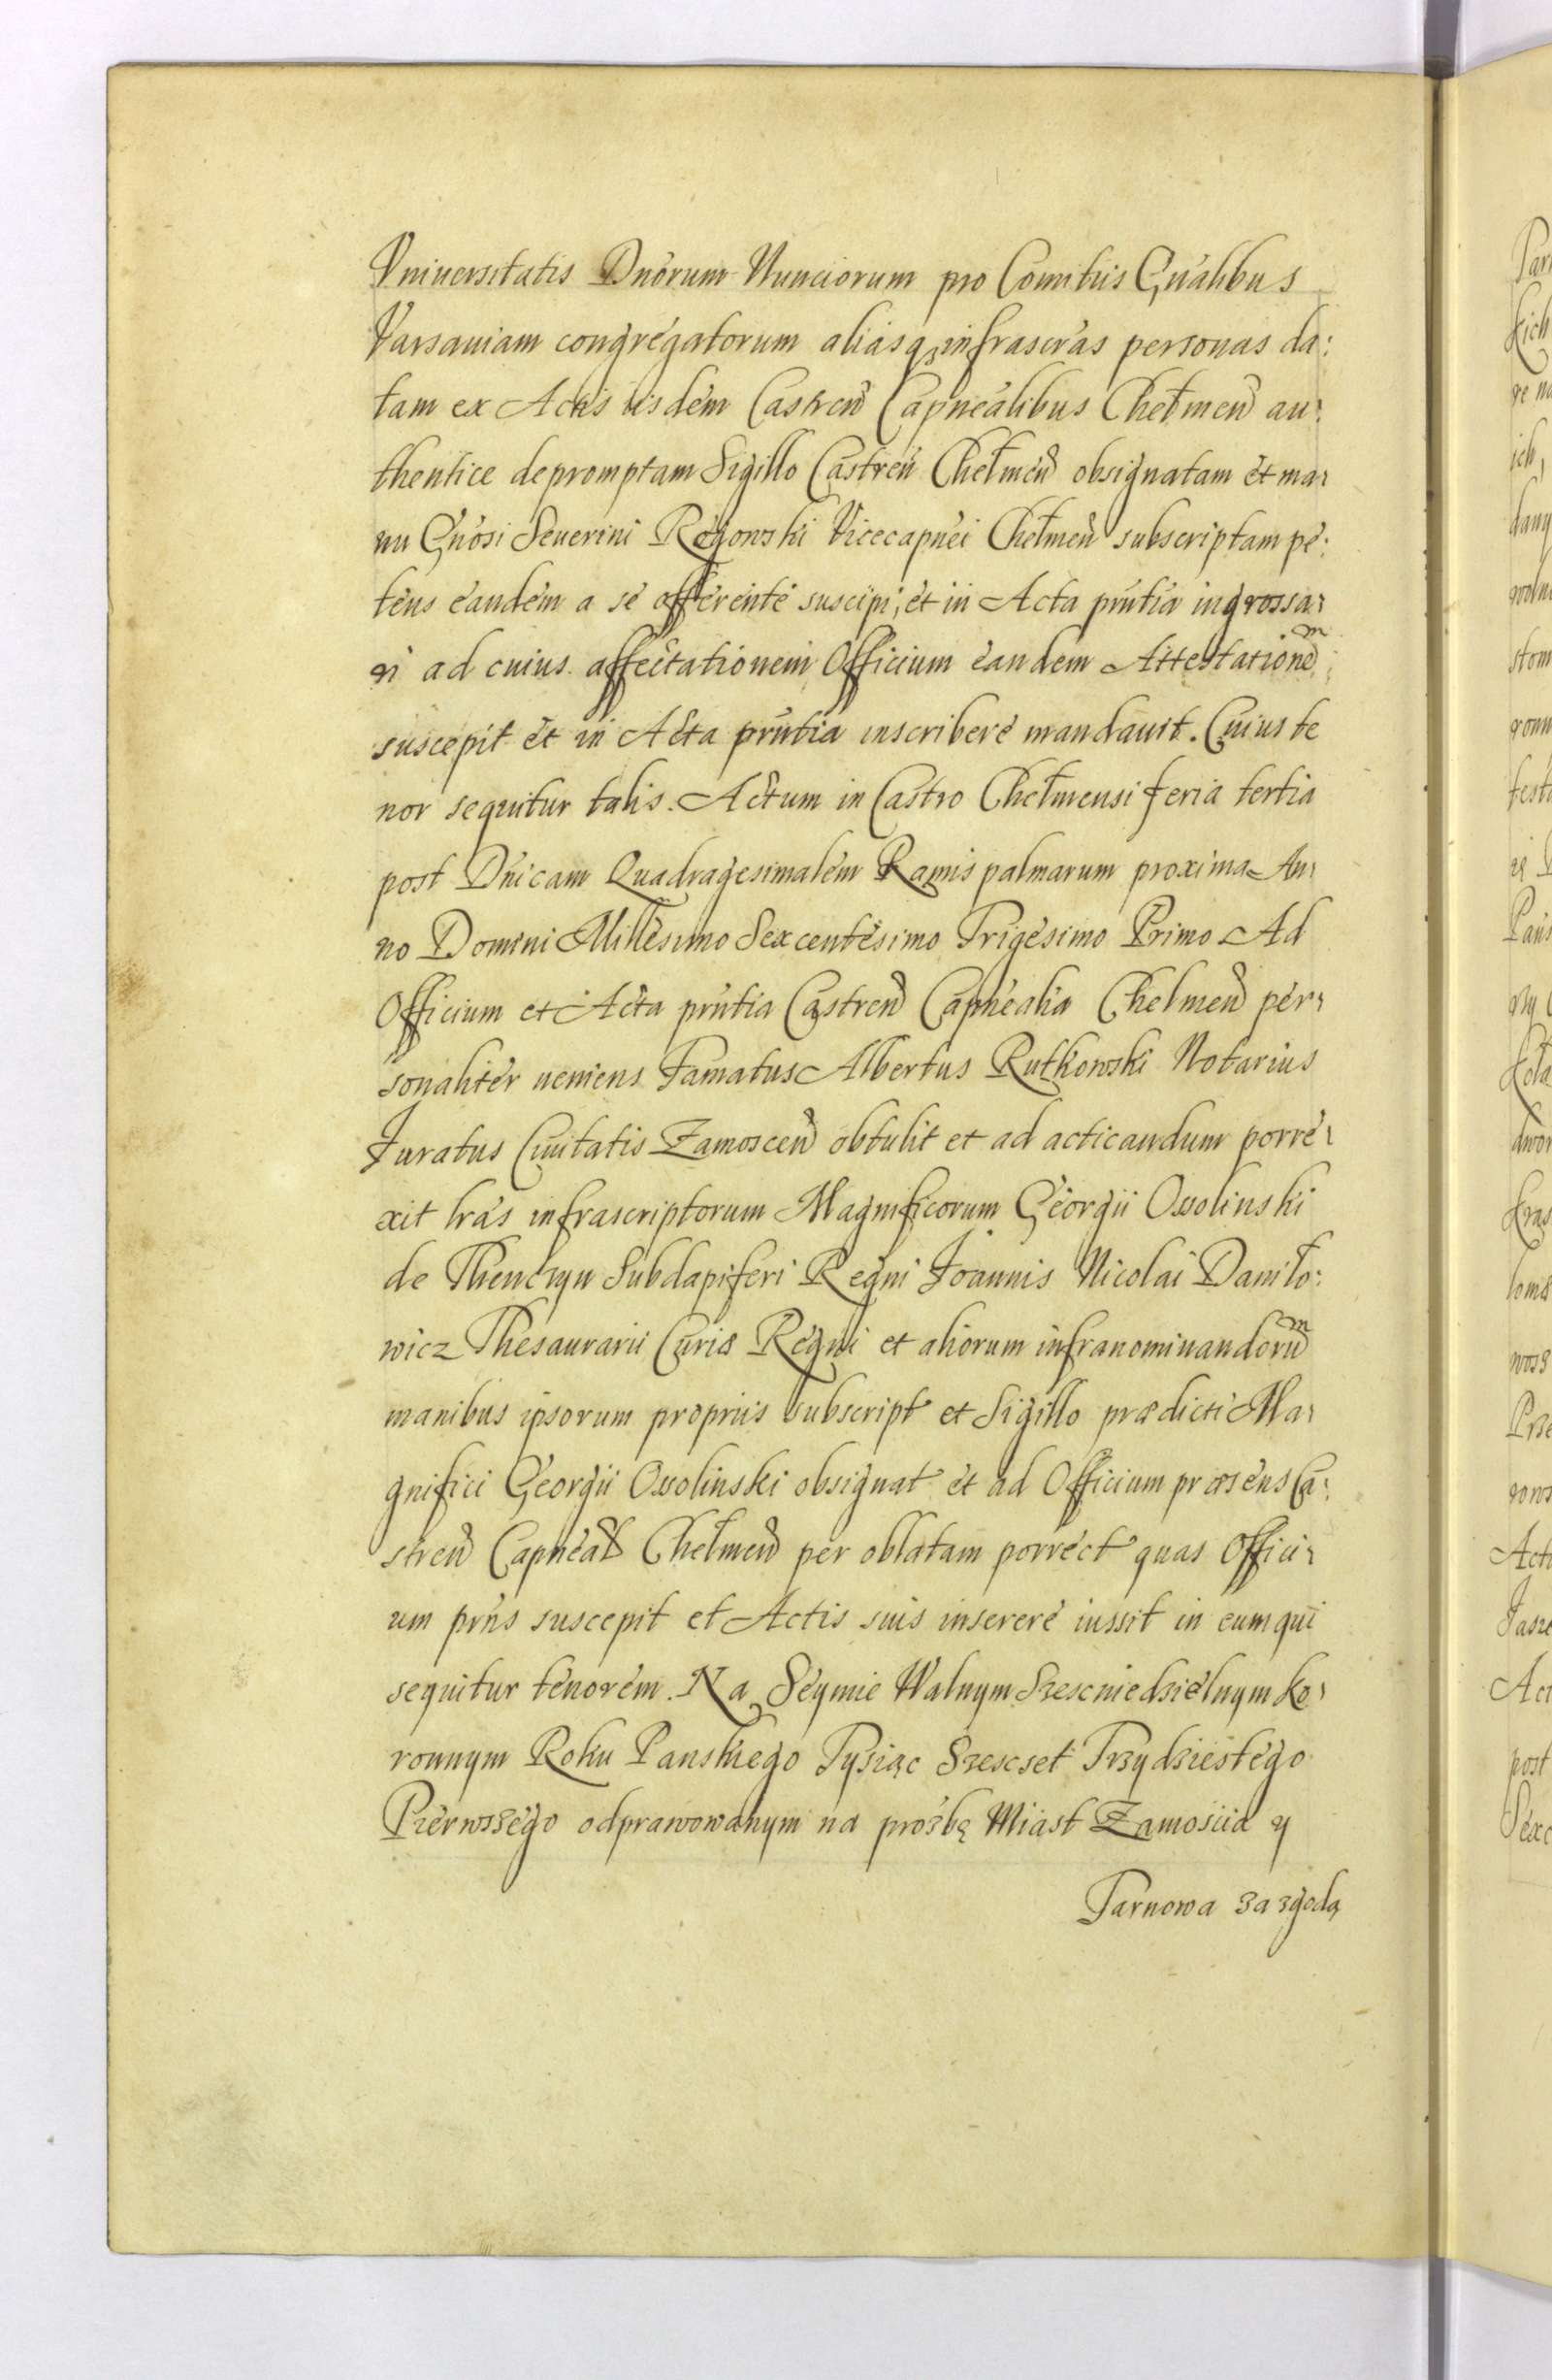 Vniuersitatis Dnorum Nunciorum pro Comitiis Gnalibus
Varsauiam congregatorum aliasq infrascras personas da:
tam ex Actis iisdem Castren Capnealibus Chełmen au:
thentice depromptam Sigillo Castren Chełmen obsignatam et ma:
nu Gnosi Seuerini Rogowski Vicecapnei Chełmen subscriptam pe:
tens eandem a se offerente suscipi, et in Acta prntia ingrossa:
ri ad cuius affectationem Officium eandem Attestationem
suscepit et in Acta prntia inscribere mandauit. Cuius te
nor sequitur talis. Actum in Castro Chełmensi feria tertia
post Dnicam Quadragesimalem Ramis palmarum proxima An:
no Domini Millesimo Sexcentesimo Trigesimo Primo Ad
Officium et Acta prntia Castren Capnealia Chelmen per:
sonaliter ueniens Famatus Albertus Rutkowski Notarius
Juratus Ciuitatis Zamoscen obtulit et ad acticandum porre:
xit lras infrascriptorum Magnificorum Georgii Ossolinski
de Thenczyn Subdapiferi Regni Joannis Nicolai Daniło:
wicz Thesaurarii Curiæ Regni et aliorum infranominandorum
manibus ipsorum propriis subscript et Sigillo prædicti Ma:
gnifici Georgii Ossolinski obsignat et ad Officium præsens Ca:
stren Capneal Chełmen per oblatam porrect quas Offici:
um prns suscepit et Actis suis inserere iussit in eum qui
sequitur tenorem. Na Seymie Walnym Szescniedzielnym Ko:
ronnym Roku Panskiego Tysiąc Szescset Trzydziestego
Pierwszego odprawowanym na prozbę Miast Zamoscia y
Tarnowa za zgodą